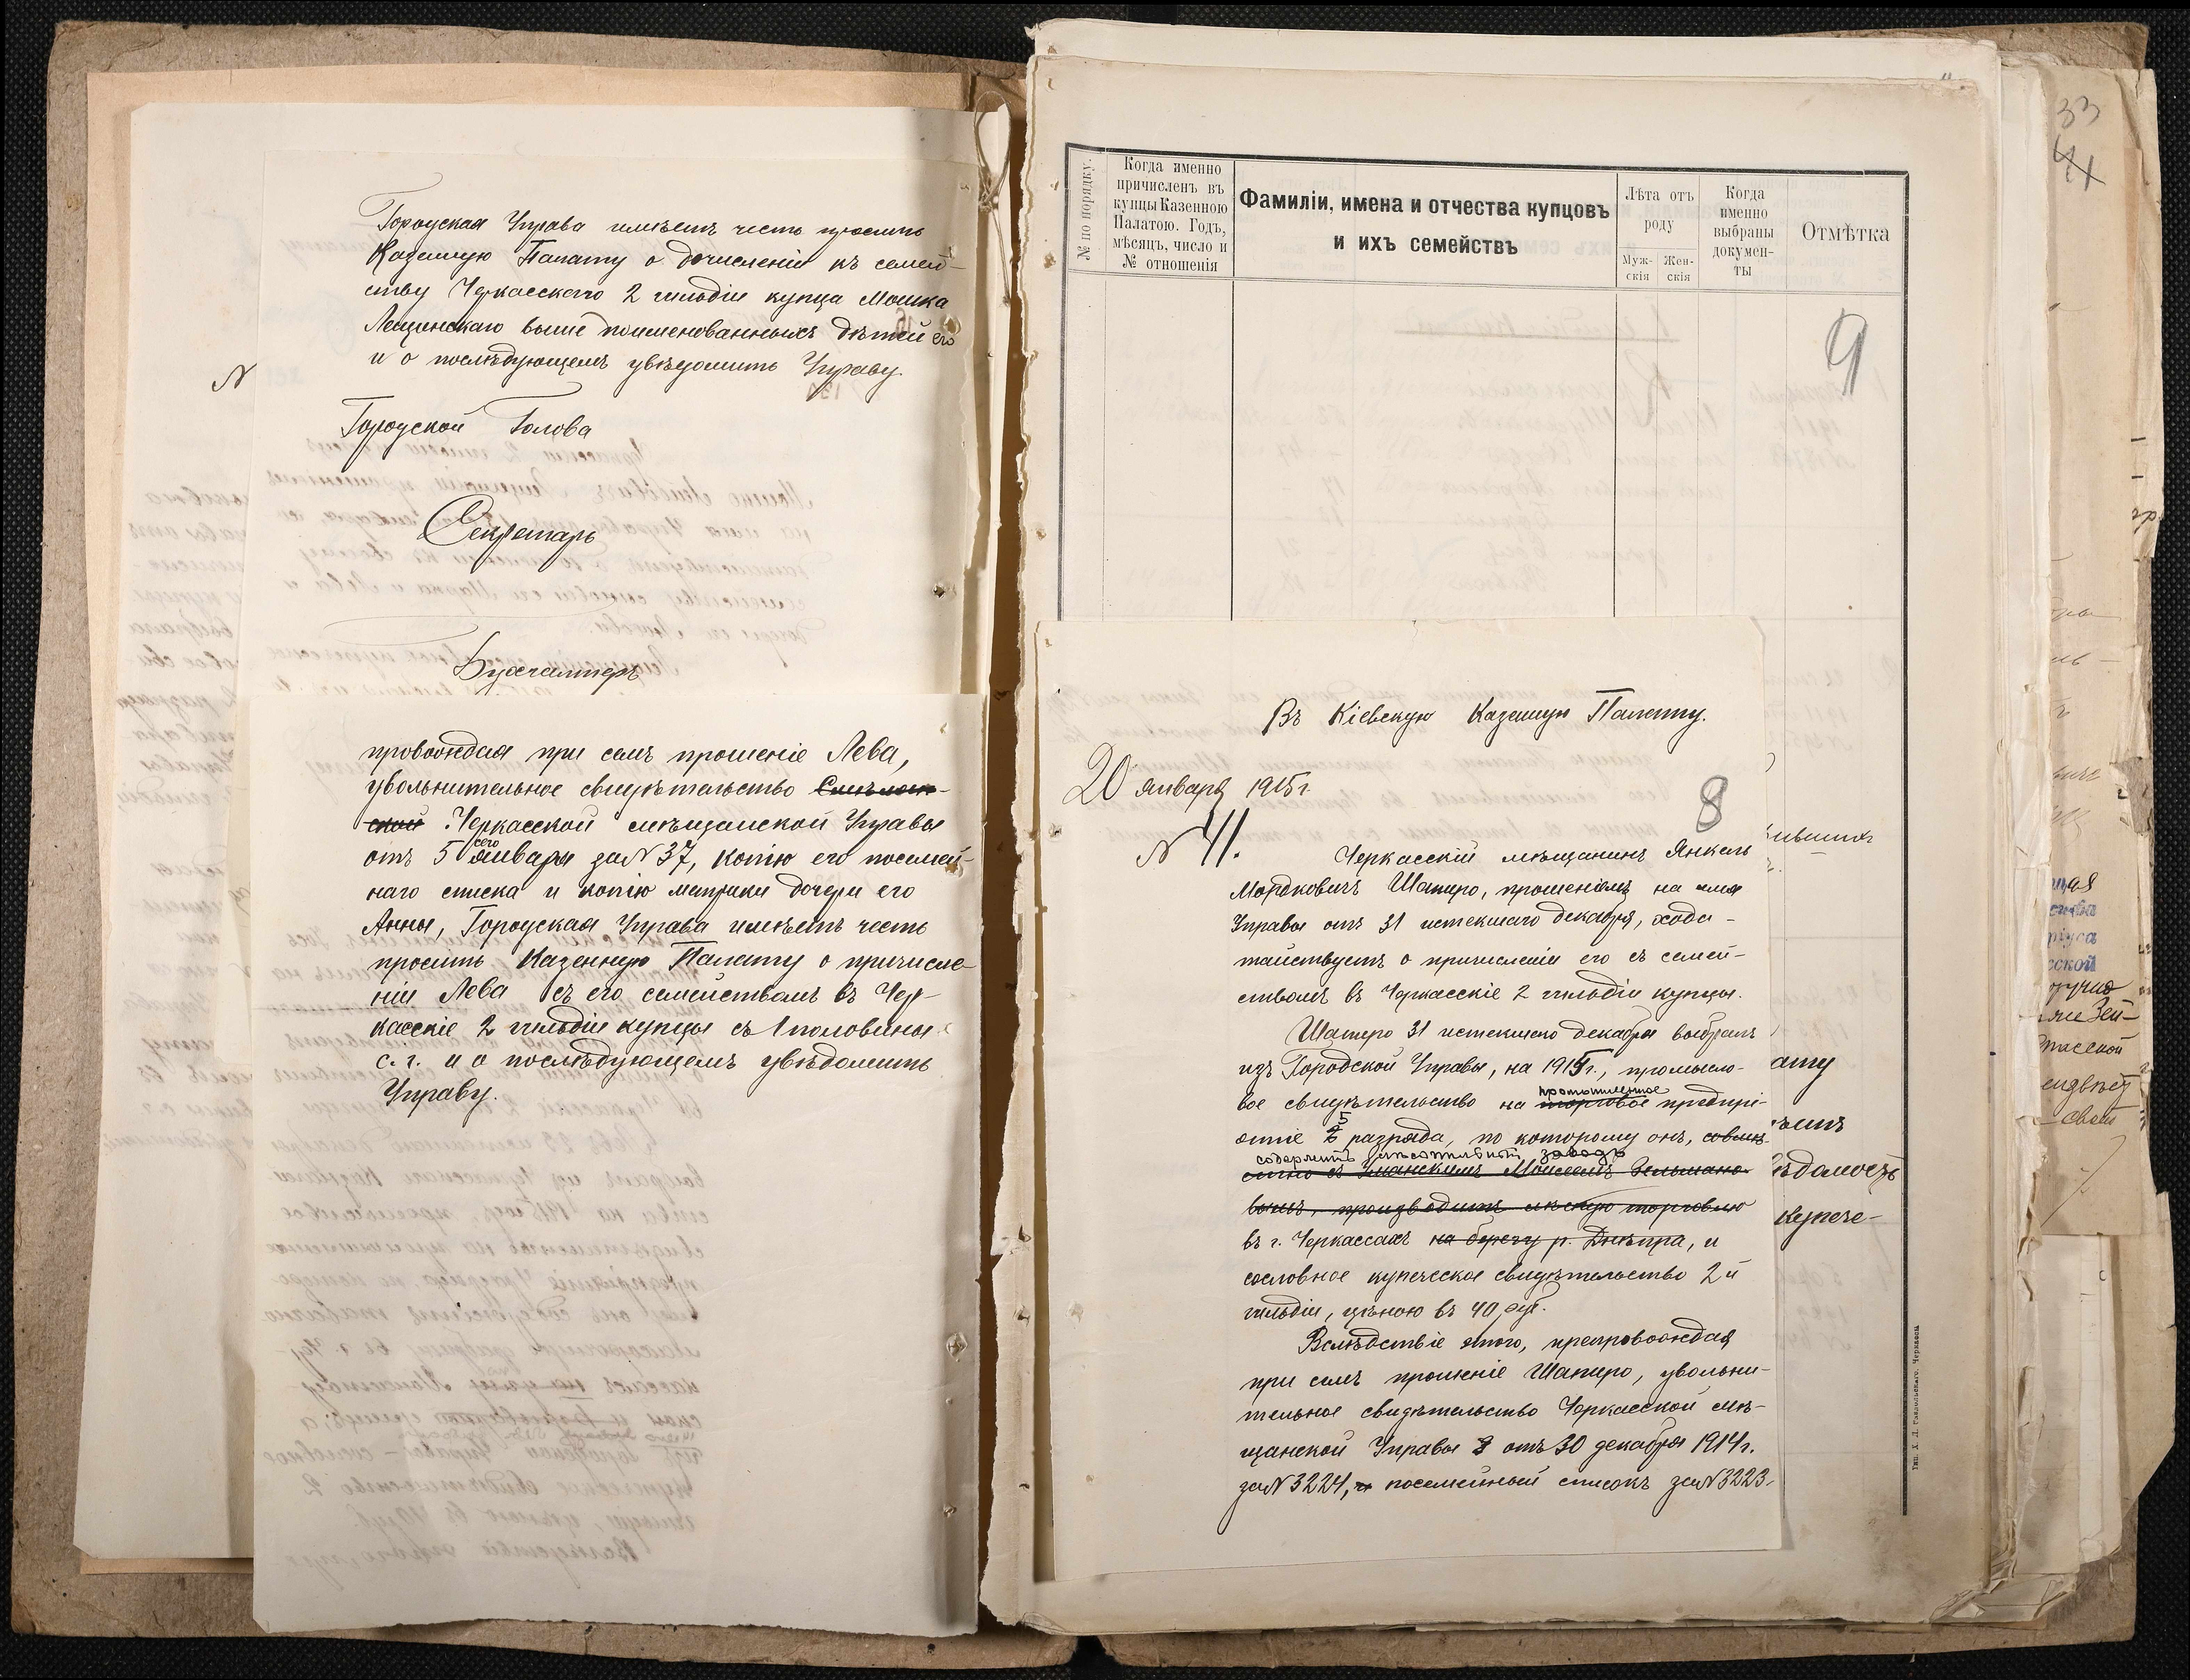 Городская Управа имѣетъ честь просить
Казенную Палату о дочисленіи къ семей-
ству Черкасскаго 2 гильдіи купца Мошка
Лещинскаго выше поименованныхъ дѣтей его
и о послѣдующемъ увѣдомить Управу.
N
Городской Голова
Секретарь
Бухгалтеръ
провождая при семъ прошеніе Лева,
увольнительное свидѣтельство
ской Черкасской мѣщанской Управы
отъ 5 сего января за N 37, копію его посемей-
наго списка и копію метрики дочери его
Анны, Городская Управа имѣетъ честь
просить Казенную Палату о причисле-
ніи Лева съ его семействомъ въ Чер-
касскіе 2 гильдіи купцы съ 1 половины
с. г. и о послѣдующемъ увѣдомить
Управу.
№ по порядку.
Когда именно
причисленъ въ
купцы Казенною
Палатою. Годъ,
мѣсяцъ, число и
№ отношенія
Фамиліи, имена и отчества купцовъ
и ихъ семействъ
Лѣта отъ
роду
Муж-
скія
Жен-
скія
Когда
именно
выбраны
докумен-
ты
Отмѣтка
9
Въ Кіевскую Казенную Палату.
20 января 1915 г.
8
N 41.
Черкасскій мѣщанинъ Янкель
Мордковичъ Шапиро, прошеніемъ на имя
Управы отъ 31 истекшаго декабря, хода-
тайствуетъ о причисленіи его съ семей-
ствомъ въ Черкасскіе 2 гильдіи купцы.
Шапиро 31 истекшаго декабря выбралъ
изъ Городской Управы, на 1915 г., промысло-
вое свидѣтельство на торговое предпрі-
промышленное
ятіе 5 разряда, по которому онъ, совмѣ-
содержитъ лѣсопильный заводъ
стно съ Уманскимъ Моисеемъ Зельмано-
вымъ, производитъ лѣсную торговлю
въ г. Черкассахъ на берегу р. Днѣпра, и
сословное купеческое свидѣтельство 2й
гильдіи, цѣною въ 40 руб.
Вслѣдствіе этого, препровождая
при семъ прошеніе Шапиро, увольни-
тельное свидѣтельство Черкасской мѣ-
щанской Управы отъ 30 декабря 1914 г.
за N 3224, и посемейный списокъ за N 3223,
ату
ѣдомость
купече-
33
41